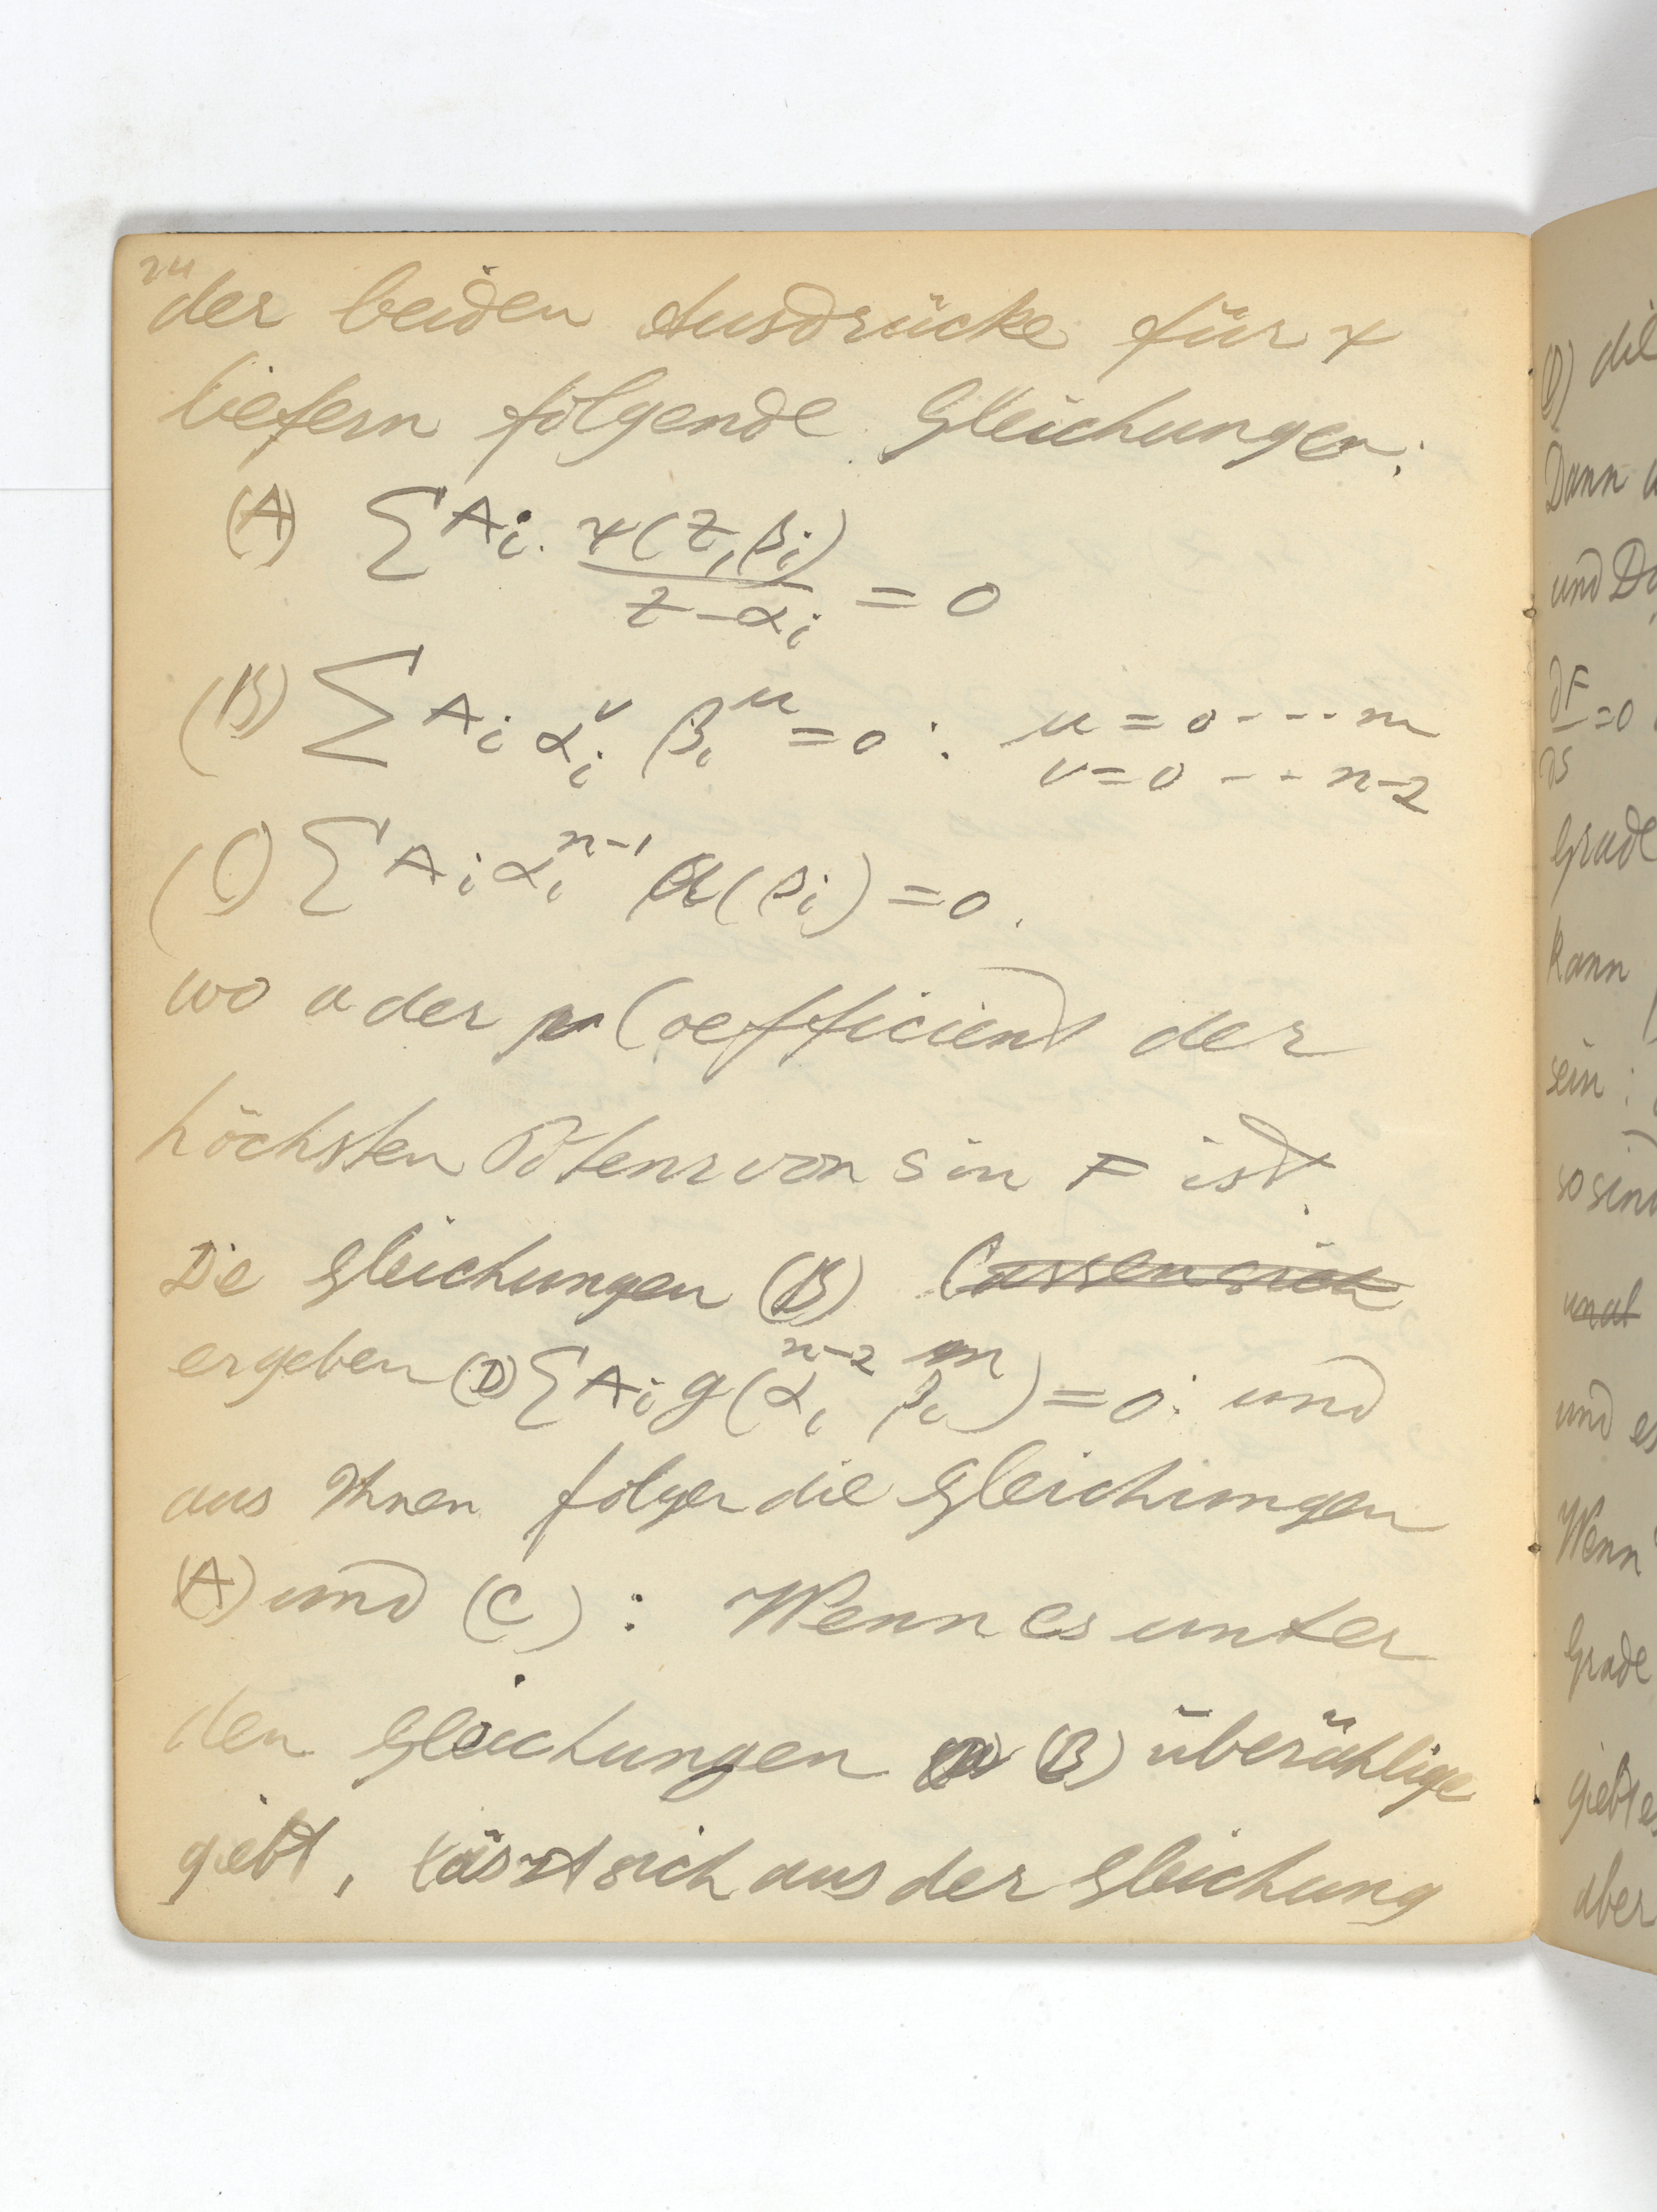 24
der beiden Ausdrücke für ψ
liefern folgende Gleichungen:
(A) ∑ A_i · ψ(z, β_i) / (z - α_i) = 0
(B) ∑ A_i α_i^ν β_i^μ = 0 : μ = 0 - - - m
ν = 0 - - - n-2
(C) ∑ A_i α_i^{n-1} a(β_i) = 0.
wo a der Coefficient der
höchsten Potenz von s in F ist.
Die Gleichungen (B) lassen sich
ergeben (D) ∑ A_i g(α_i^{n-2} β_i^m) = 0: und
aus Ihnen folgen die Gleichungen
(A) und (C) : Wenn es unter
den Gleichungen (B) überzählige
giebt, lässt sich aus der Gleichung
(D) die
Dann
und
∂F/∂s = 0
Grade
kann
sein :
so sind
und es
Wenn
Grade
giebt es
aber